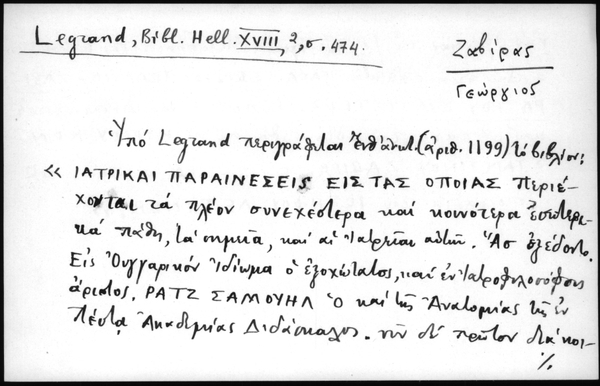 Legrand, Bibl. Hell. XVIII, 2, σ. 474.
Ζαβίρας
Γεώργιος
Ὑπό Legrand περιγράφεται ἐνθάντ. (ἀριθ. 1199) τό βιβλίον:
« ΙΑΤΡΙΚΑΙ ΠΑΡΑΙΝΕΣΕΙΣ ΕΙΣ ΤΑΣ ΟΠΟΙΑΣ περιέ-
χονται τά πλέον συνεχέστερα καί κοινότερα ἐσωτερι-
κά πάθη, τά σημεῖα, καί αἱ ἰατρεῖαι αὐτῶν. Ἃς ἐξέδοτο
Εἰς Οὐγγαρικόν Ἰδίωμα ὁ ἐξοχώτατος, καί ἐν Ἰατροφιλοσόφοις
ἄριστος. ΡΑΤΖ ΣΑΜΟΥΗΛ Ὁ καί τῆς Ἀνατομίας τῆς ἐν
Πέστᾳ Ἀκαδημίας Διδάσκαλος. νῦν δέ πρῶτον διά κοι-
./.